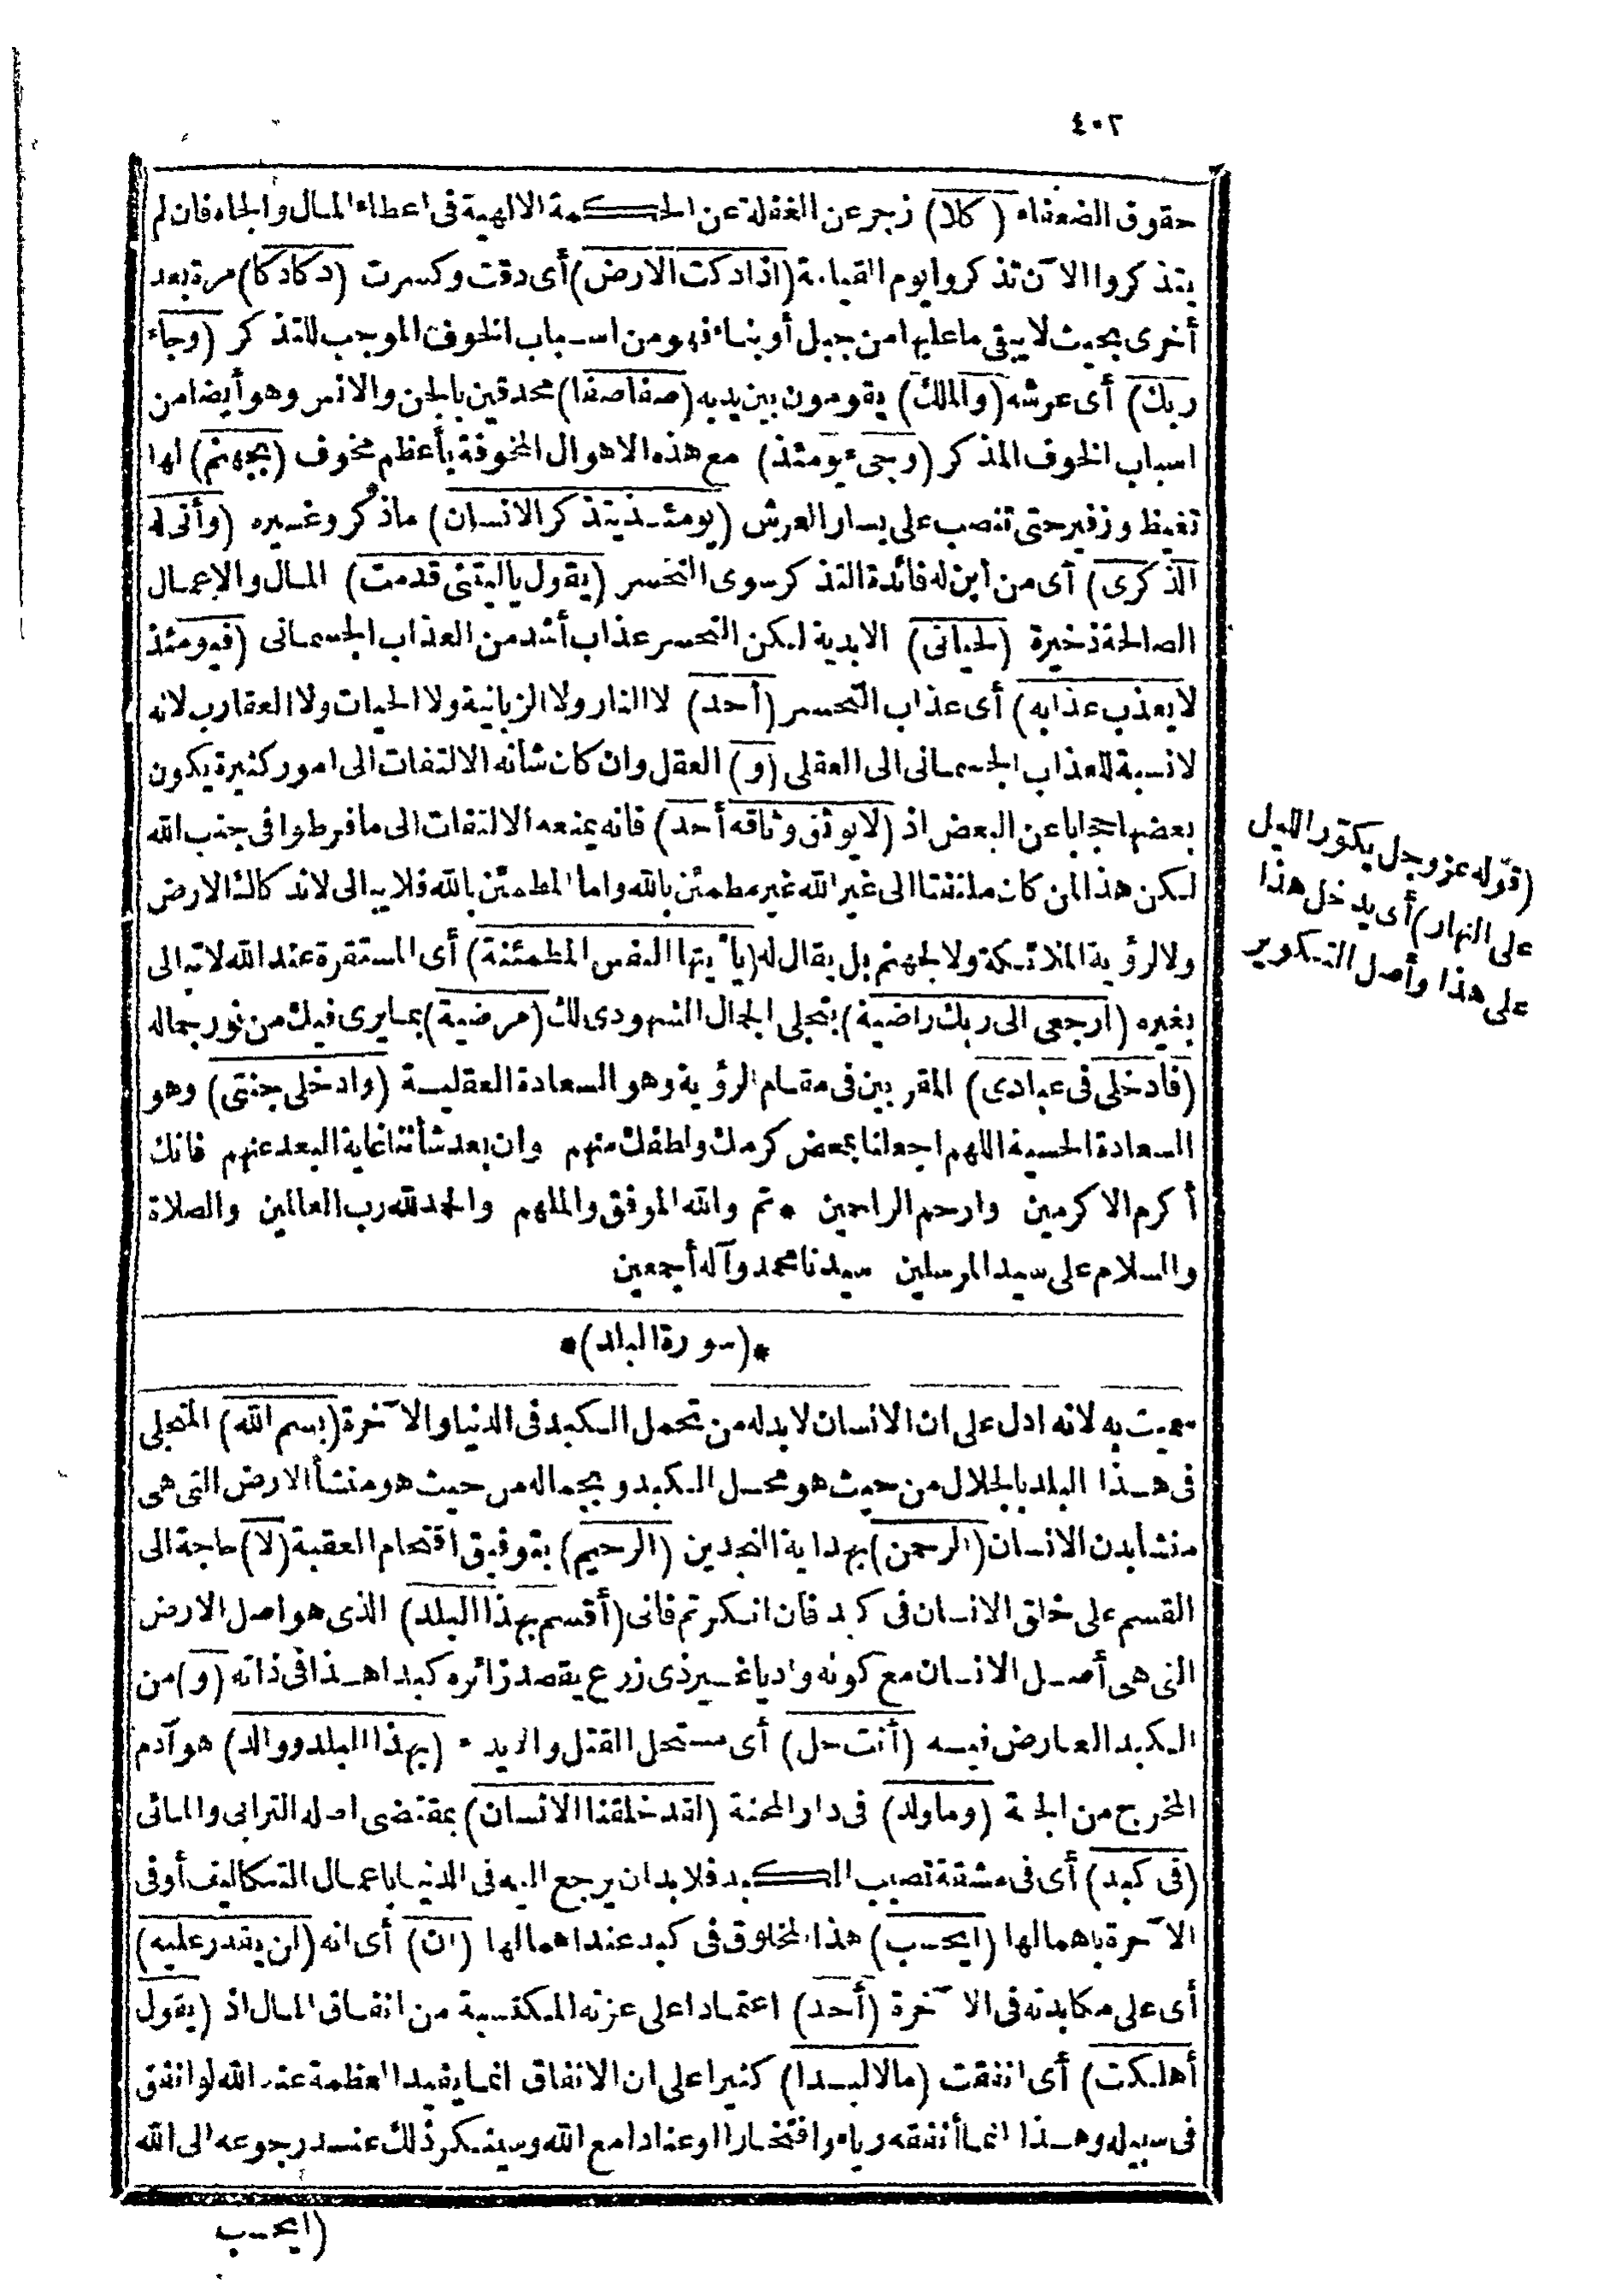 ٤٠٢
حقوق الضعفاء (كلا) زجر عن الغفلة عن الحكمة الالهية فى اعطاء المال والجاه فان لم
يتذكروا الآن تذكروا يوم القيامة (اذا دكت الارض) أى دقت وكسرت (دكادكا) مرة بعد
أخرى بحيث لا يبقى ما عليها من جبل أو بناء فهو من اسباب الخوف الموجب للتذكر (وجاء
ربك) أى عرشه (والملك) يقومون بين يديه (صفاصفا) محدقين بالجن والانس وهو أيضا من
اسباب الخوف المذكر (وجىء يومئذ) مع هذه الاهوال المخوفة بأعظم مخوف (بجهنم) لها
تغيظ وزفير حتى تنصب على يسار العرش (يومئذ يتذكر الانسان) ماذكر وغيره (وأنى له
الذكرى) أى من أين له فائدة التذكر سوى التحسر (يقول ياليتنى قدمت) المال والاعمال
الصالحة ذخيرة (لحياتى) الابدية لكن التحسر عذاب أشد من العذاب الجسمانى (فيومئذ
لا يعذب عذابه) أى عذاب التحسر (أحد) لا النار ولا الزبانية ولا الحيات ولا العقارب لانه
لا نسبة للعذاب الجسمانى الى العقلى (و) العقل وان كان شأنه الالتفات الى امور كثيرة يكون
بعضها حجابا عن البعض اذ (لا يوثق وثاقه أحد) فانه يمنعه الالتفات الى ما فرطوا فى جنب الله
لكن هذا لمن كان ملتفتا الى غير الله غير مطمئن بالله واما المطمئن بالله فلا يبالى لاندكاك الارض
ولا لرؤية الملائكة ولا لجهنم بل يقال له (يا أيتها النفس المطمئنة) أى المستقرة عند الله لا تبالى
بغيره (ارجعى الى ربك راضية) بتجلى الجمال الشهودى لك (مرضية) بما يرى فيك من نور جماله
(فادخلى فى عبادى) المقربين فى مقام الرؤية وهو السعادة العقلية (وادخلى جنتى) وهو
السعادة الحسية اللهم اجعلنا بمحض كرمك ولطفك منهم وان بعد شأننا غاية البعد عنهم فانك
أكرم الاكرمين وارحم الراحمين * تم والله الموفق والملهم والحمد لله رب العالمين والصلاة
والسلام على سيد المرسلين سيدنا محمد وآله أجمعين
*(سورة البلد)*
سميت به لانه ادل على ان الانسان لا بد له من تحمل الكبد فى الدنيا والآخرة (بسم الله) المتجلى
فى هذا البلد بالجلال من حيث هو محل الكبد وبجماله من حيث هو منشأ الارض التى هى
منشأ بدن الانسان (الرحمن) بهداية النجدين (الرحيم) بتوفيق اقتحام العقبة (لا) حاجة الى
القسم على خلق الانسان فى كبد فان انكرتم فانى (أقسم بهذا البلد) الذى هو اصل الارض
التى هى أصل الانسان مع كونه واديا غير ذى زرع يقصد زائره كبدا هذا فى ذاته (و) من
الكبد العارض فيه (أنت حل) أى مستحل القتل والايذاء (بهذا البلد ووالد) هو آدم
المخرج من الجنة (وما ولد) فى دار المحنة (لقد خلقنا الانسان) بمقتضى اصله الترابى والمائى
(فى كبد) أى فى مشقة تصيب الكبد فلا بد ان يرجع اليه فى الدنيا باعمال التكاليف أو فى
الآخرة باهمالها (ايحسب) هذا المخلوق فى كبد عند اهمالها (ان) أى انه (لن يقدر عليه)
أى على مكابدته فى الآخرة (أحد) اعتمادا على عزته المكتسبة من انفاق المال اذ (يقول
أهلكت) أى انفقت (مالا لبدا) كثيرا على ان الانفاق انما يفيد العظمة عند الله لو انفق
فى سبيله وهذا انما أنفقه رياء وافتخارا او عنادا مع الله وسينكر ذلك عند رجوعه الى الله
(ايحسب
(قوله عز وجل يكوّر الليل
على النهار) أى يدخل هذا
على هذا وأصل التكوير